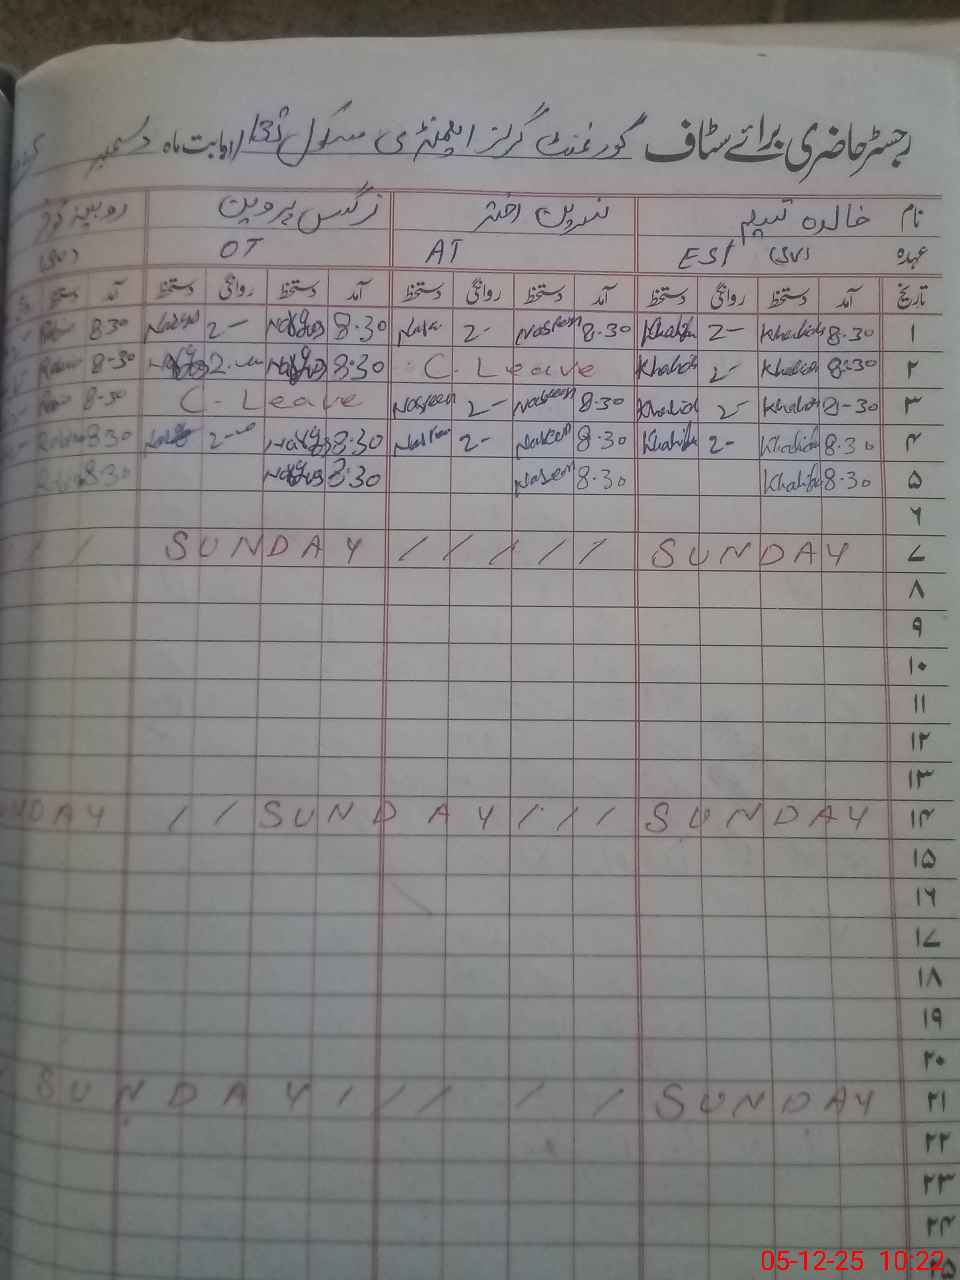 رجسٹر حاضری برائے سٹاف گورنمنٹ گرلز ایلیمنٹری سکول بابت ماہ دسمبر
نام خالدہ تسنیم نسرین اختر نرگس پروین روبینہ
عہدہ ESE OT AT
تاریخ آمد دستخط روانگی دستخط آمد دستخط روانگی دستخط آمد دستخط روانگی دستخط آمد دستخط
۱ 8.30 Khalida 2- 8.30 Nasreen 2- 8.30 Nargis 2- 8.30
۲ 8.30 Khalida 2- Khalida C. Leave 8.30 Nargis 2- 8-30
۳ 8-30 Khalida 2- Khalida 8.30 Nasreen 2- Nasreen C. Leave 8-30
۴ 8.30 Khalida 2- Khalida 8.30 Nasreen 2- Nasreen 8.30 Nargis 2- 8.30
۵ 8.30 Khalida 8.30 Nasreen 8.30 Nargis 8.30
۶
۷ SUNDAY / / / / / SUNDAY / /
۸
۹
۱۰
۱۱
۱۲
۱۳
۱۴ SUNDAY / / / SUNDAY / / NDAY
۱۵
۱۶
۱۷
۱۸
۱۹
۲۰
۲۱ SUNDAY / / / / / SUNDAY
۲۲
۲۳
۲۴
۲۵
05-12-25 10:22